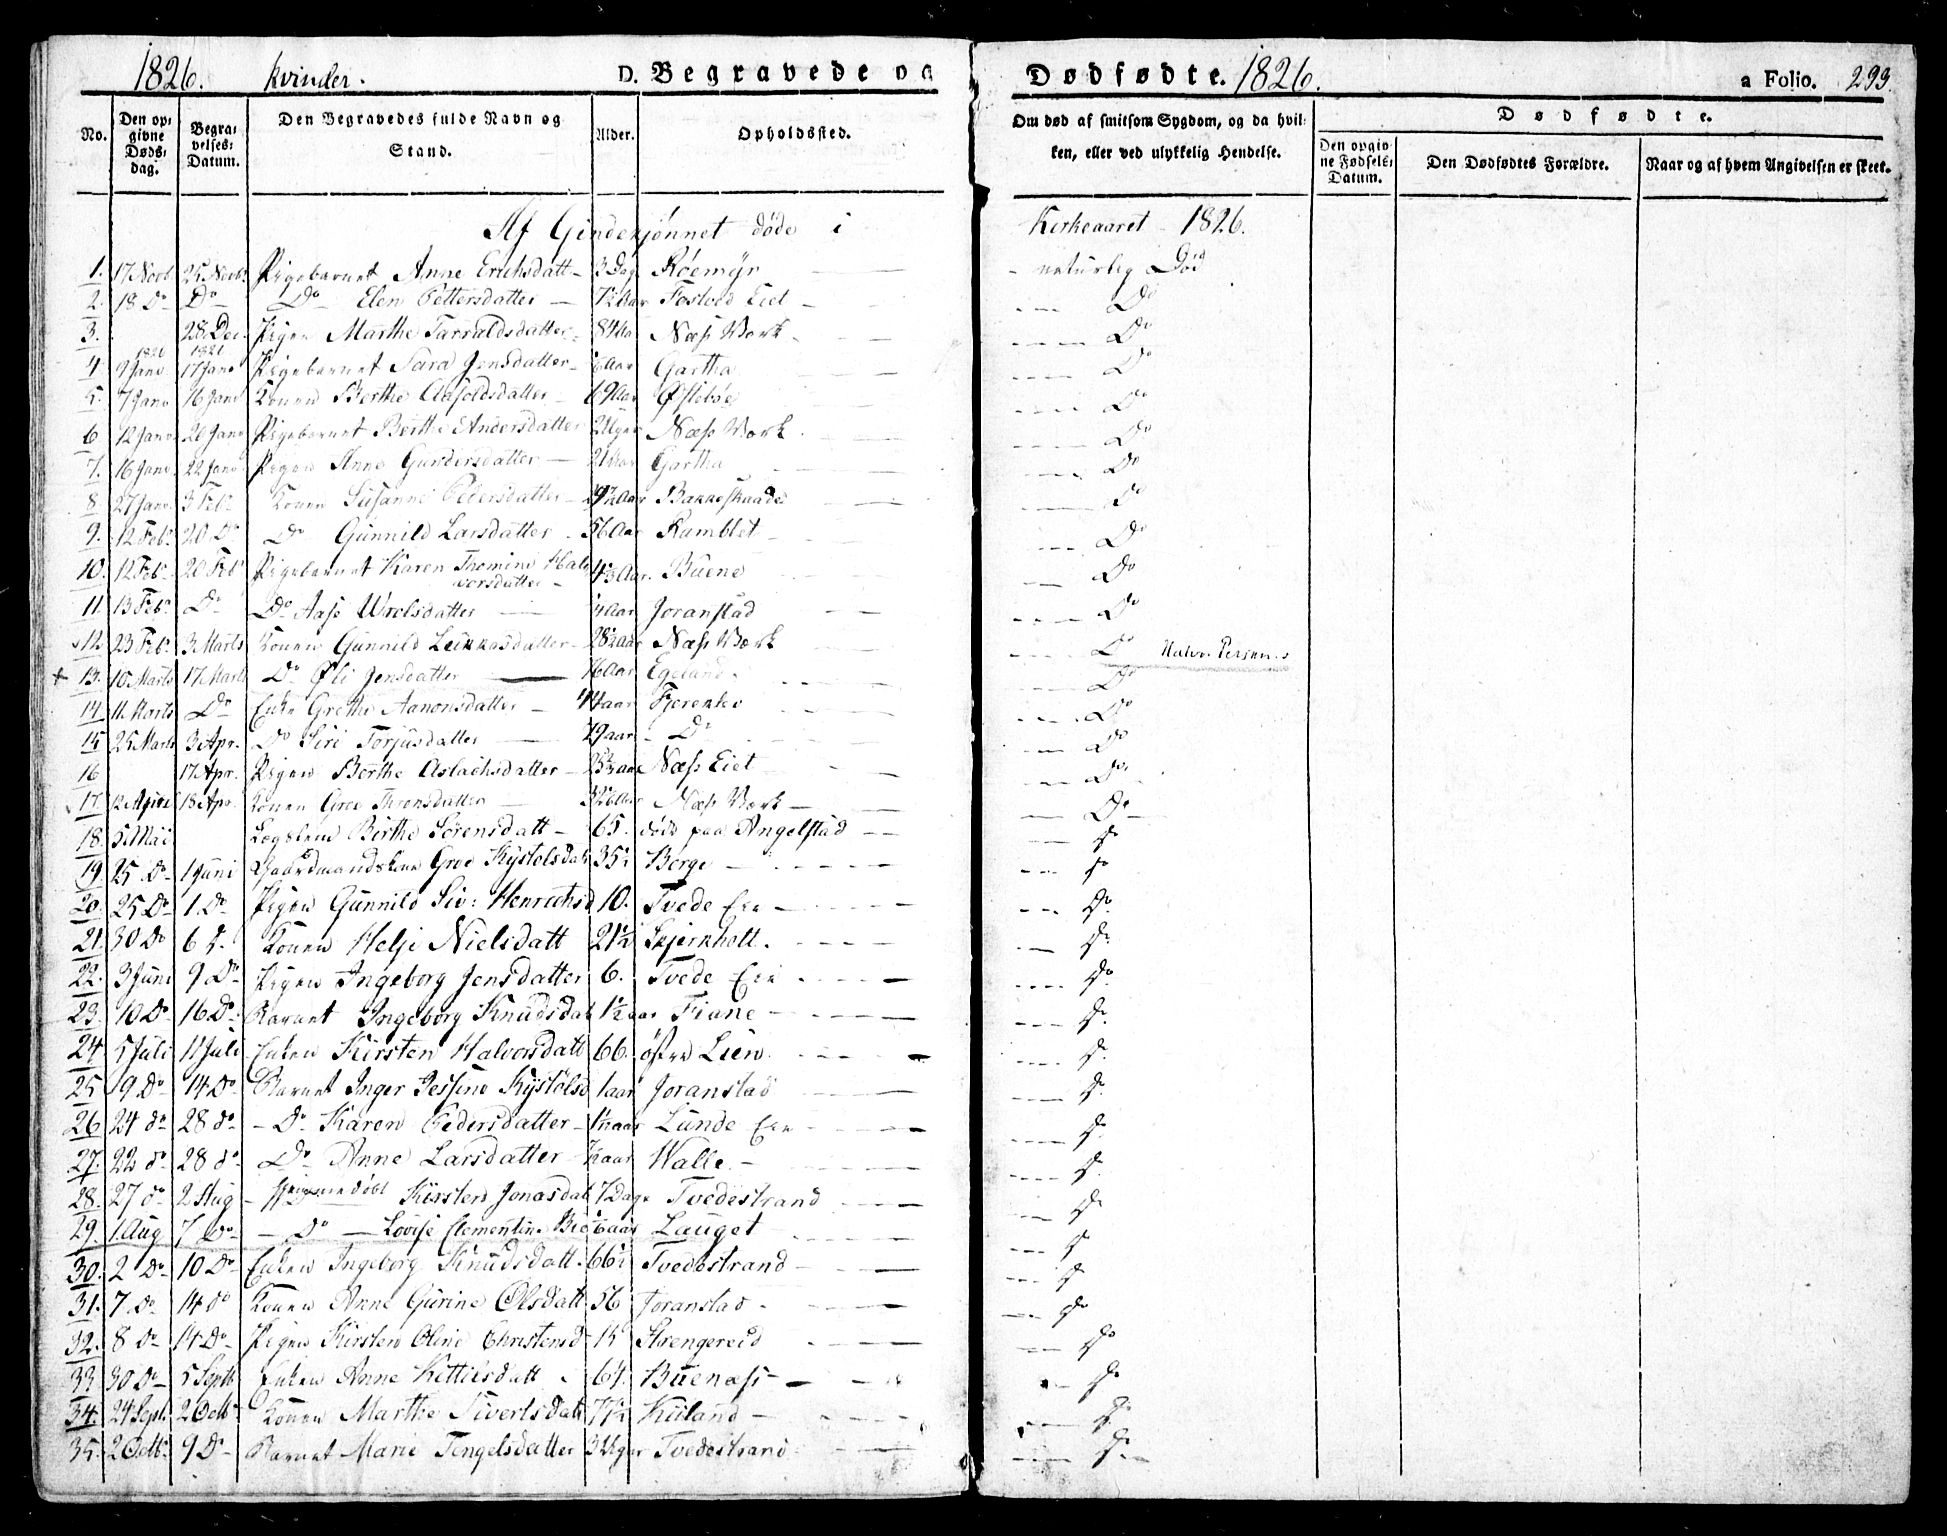 1826. Kvinder. D. Begravede og Dødfødte. 1826. a Folio. 293.
No. Den opgivne Dødsdag. Begravelses-Datum. Den Begravedes fulde Navn og Stand. Alder. Opholdssted. Om død af smitsom Sygdom, og da hvilken, eller ved ulykkelig Hendelse. Dødfødte.
Den opgivne Fødsels-Datum. Den Dødfødtes Forældre. Naar og af hvem Angivelsen er skeet.
Af Qindekjønnet døde i Kirkeaaret 1826.
1. 17 Novb 25 Novbr Pigebarnet Anne Erichsdatt 3 Dag Røemyr naturlig Død
2. 18 Do Do Do Elen Pettersdatter Fostved Eiet Do
3. 28 Dec. Pigen Marthe Tarraldsdatter 84 Aar Næss Værk Do
1826 1826
4 9 Janv 17 Janv Pigebarnet Sara Jensdatter Gartha Do
5. 7 Janv 16 Janv Konen Berthe Aasoldsdatter 69 Aar Østebøe Do
6 12 Janv 20 Janv Pigebarnet Berthe Andersdatter Næss Værk Do
7. 16 Janv. 22 Janv Pigen Anne Gundersdatter Gartha Do
8 27 Janv. 3 Feb. Konen Susanne Pedersdatter Bakkeskaade Do
9. 12 Feb. 20 Do Do Gunnild Larsdatter 56 Aar Ramblet Do
10. 12 Feb. 20 Feb Pigebarnet Karen Thomine Halvorsdatter Buene Do
11. 13 Feb. Do Do Aase Wrolsdatter Joranstad Do
12. 23 Feb. 3 Marts Konen Gunnild 28½ aar Næss Værk Do
+ 13. 10 Marts 17 Marts Do Øli Jensdatter Egeland Do
14. 11 Marts Do Enke Grethe Aanonsdatter Do
15 25 Marts 3 Apr. Do Siri Torjusdatter 79 aar Do Do
16 17 Apr. Pigen Berthe Aslachsdatter Næss Eiet Do
17. 12 April 18 Apr. Konen Groe Thronsdatter Næss Værk Do
18. 5 Mai Lægslem Birthe Sørensdatt 65. døde paa Angelstad do
19. 25 Do 1 Juni Gaardmandskone Groe Kystolsdat 35½ Berge do
20. 25 Do 1. Do Pigen Gunnild Siv: Henrichsd 10. Tvede Eie Do
21. 30 Do 6 d. Konen Helje Nielsdatt 21½ Skjernholt. do
22. 3 Juni 9 Do Pigen Ingeborg Jensdatter 6. Tvede Eie Do
23. 10 Do 16 Do Barnet Ingeborg Knudsdat 1½ aar Fiane do
24 5 Juli 11 Juli Enken Kirsten Halvorsdatt 66. østre Lien do
25 9 Do 14 Do Barnet Inger Jessine Kystolsd 1 aar Joranstad do
26 24 do 28 do Do Karen Pedersdatter Lunde Eie do
27. 22 do 28 do Do Anne Larsdatter Walle do
28. 27 do 2 Aug Kirsten Jonasdat 7 Dage Tvedestrand do
29. 1. Aug 7 Do Do Lovise Clementine Lauget do
30. 2 Do 10 Do Enken Ingeborg Knudsdatt 66½ Tvedestrand do
31. 7. Do 14 do Konen Anne Gurine Olsdatt 56 Joranstad do
32. 8 Do 14 Do Pigen Kirsten Oline Christensd 15 Strengereid do
33 30 Do 5 Septb Enken Anne Kittilsdatt 64. Buenæss do
34. 24 Sept. 2 Octb Konen Marthe Sivertsdatt 77½ Kiland do
35. 2 Octb. 9 Do Barnet Marie Tengelsdatter 3 Uger Tvedestrand do